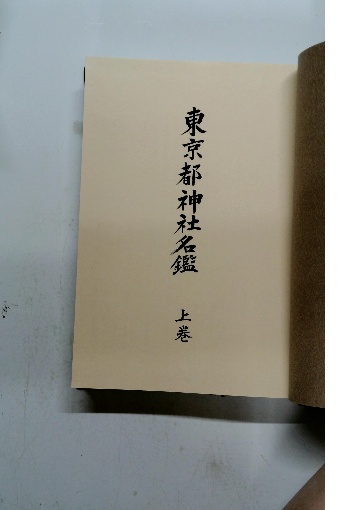 東京都神社名鑑
上巻